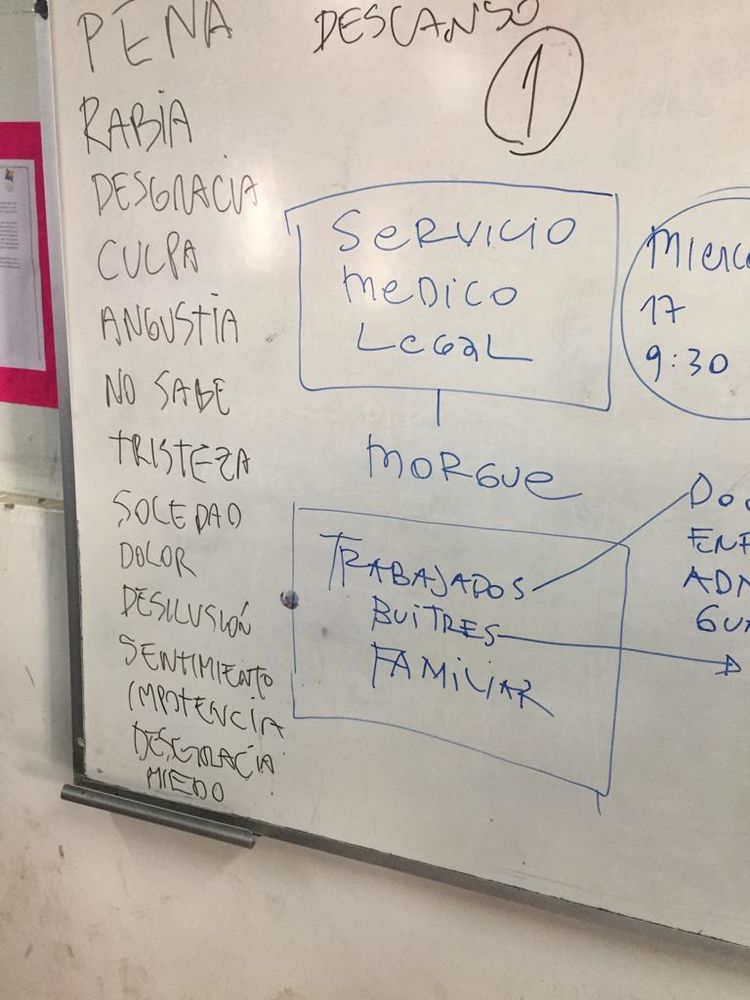 PENA
RABIA
DESGRACIA
CULPA
ANGUSTIA
NO SABE
TRISTEZA
SOLEDAD
DOLOR
DESILUSIÓN
SENTIMIENTO
IMPOTENCIA
DESGRACIA
MIEDO
DESCANSO
1
SERVICIO
MEDICO
LEGAL
MORGUE
TRABAJADOS
BUITRES
FAMILIAR
MIERC
17
9:30
DOC
ENF
ADM
GUA